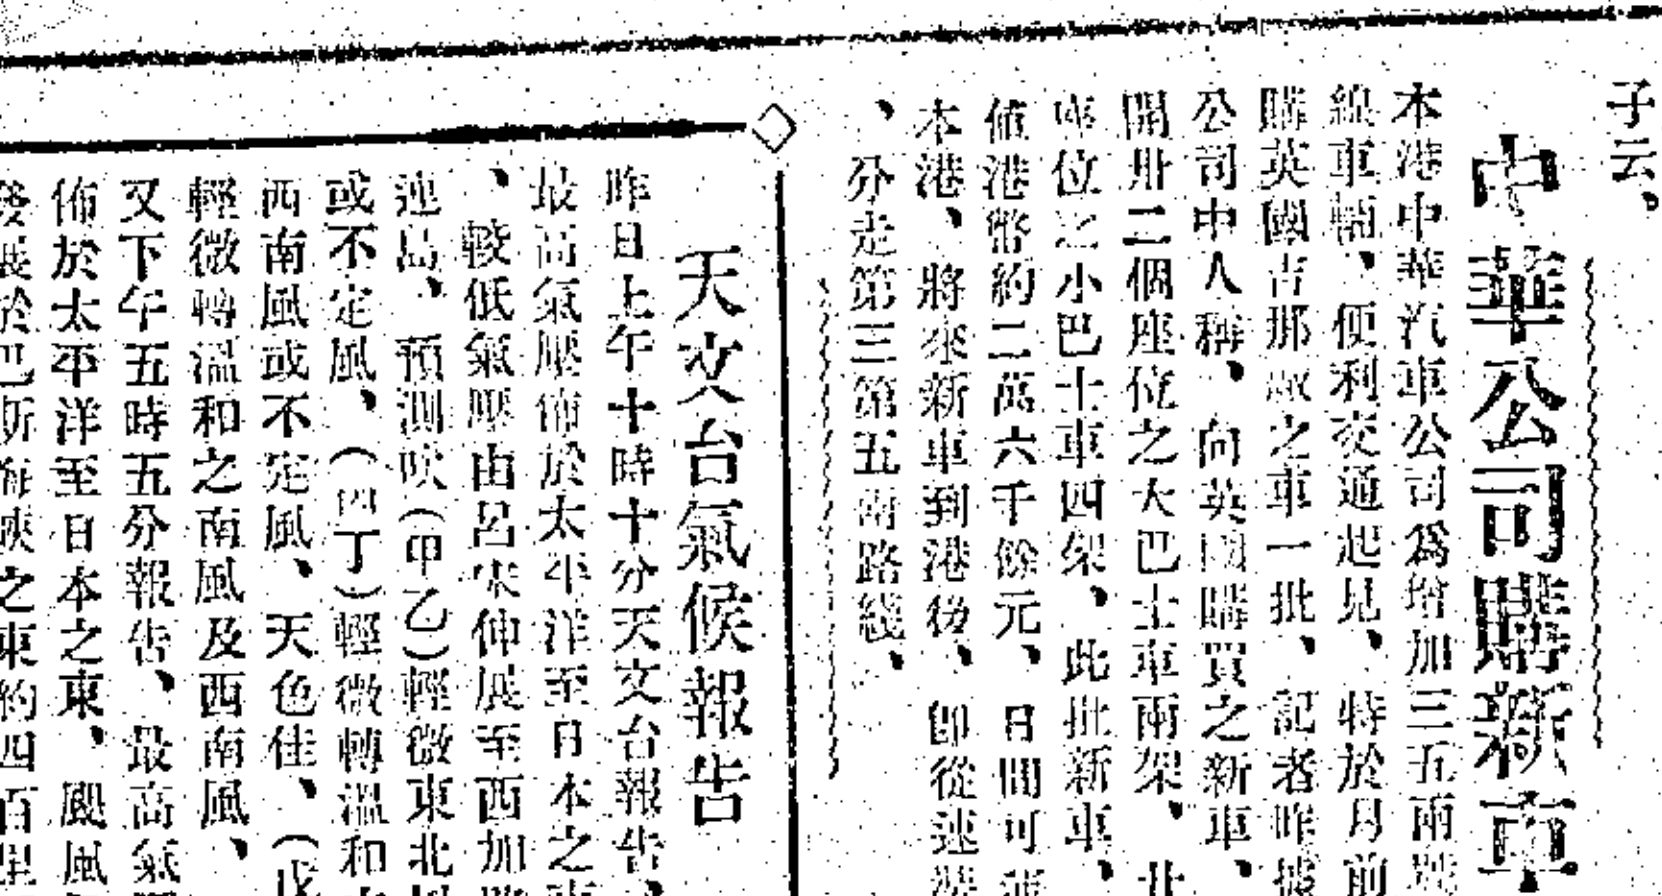 子云、
中華公司購新車
本港中華汽車公司為增加三五兩
線車輛、便利交通起見、特於月前
購英國吉那之車一批、記者昨據
公司中人稱、向英國購買之新車、
開卅二個座位之大巴士車兩架、
座位之小巴士車四架、此批新車、
值港幣約二萬六千餘元、日間可
本港、將來新車到港後、即從速
、分走第三第五兩路綫、
天文台氣候報告
昨日上午十時十分天文台報告、
最高氣壓佈於太平洋至日本之東
、較低氣壓由呂宋伸展至西加
連島、預測吹(甲乙)輕微東北
或不定風、(丙丁)輕微轉溫和
西南風或不定風、天色佳、(戊
輕微轉溫和之南風及西南風、
又下午五時五分報告、最高氣
佈於太平洋至日本之東、颶風
發展於巴斯海峽之東約四百里